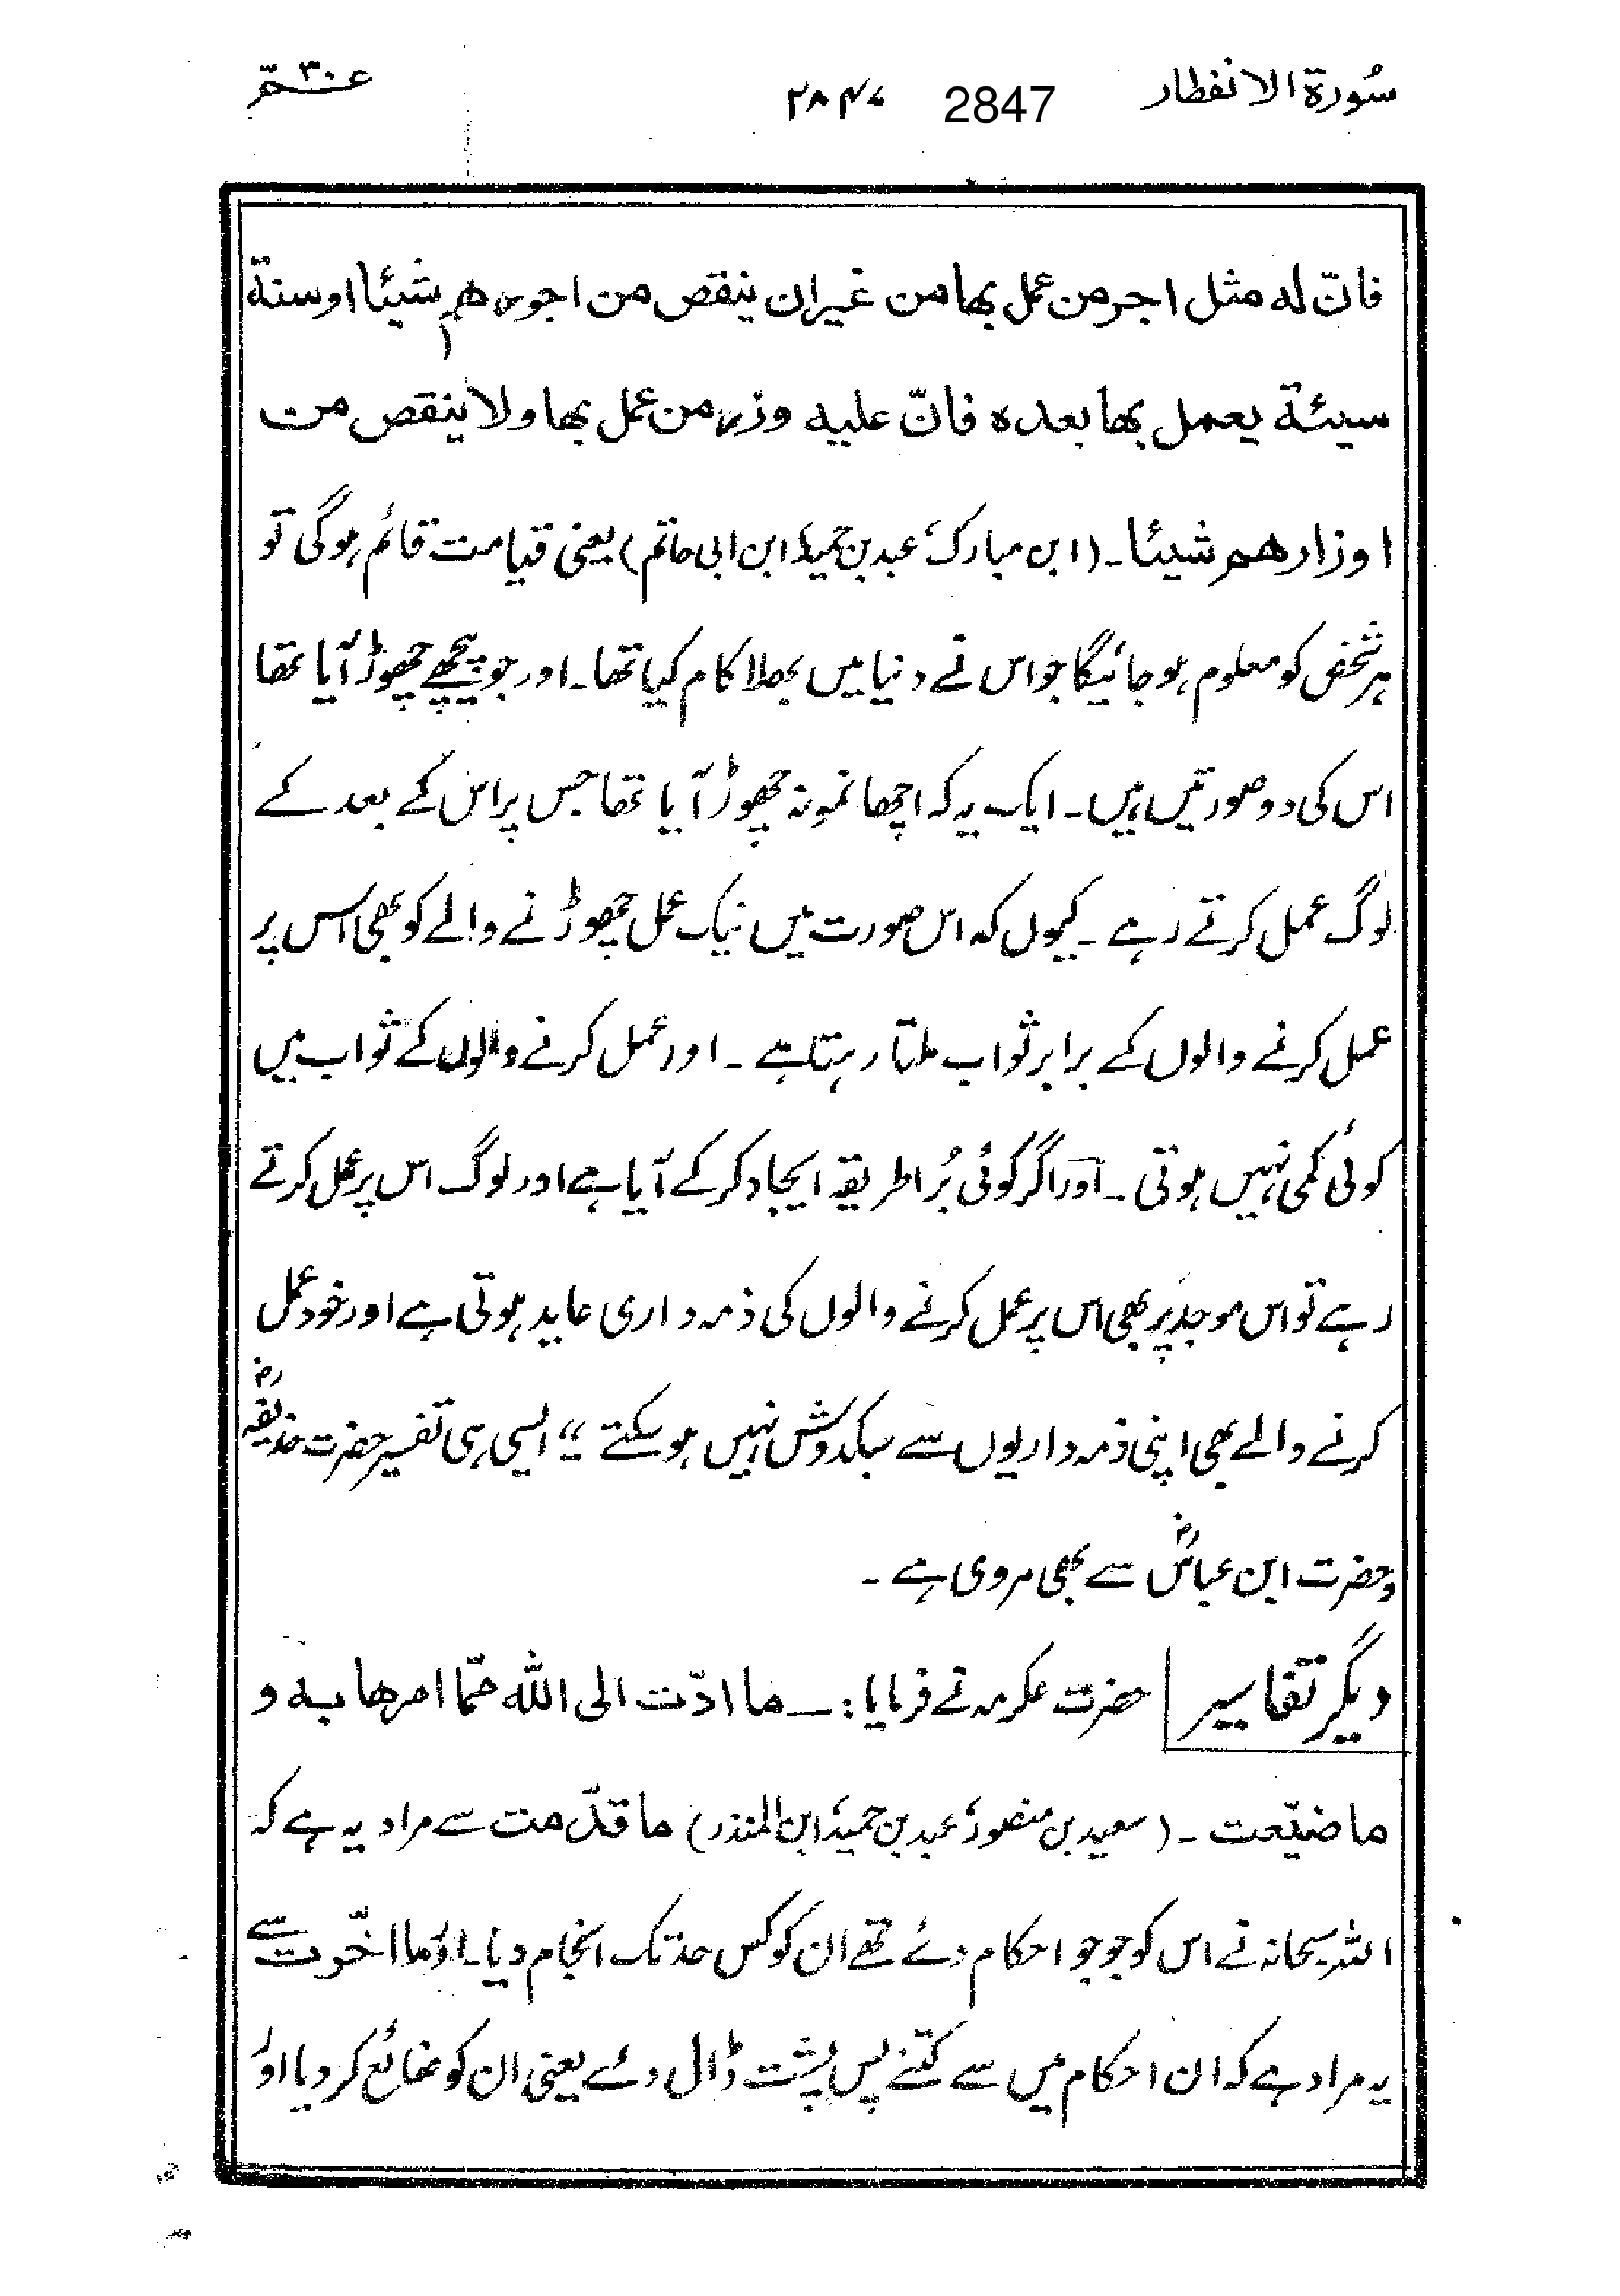 سُورۃ الانفطار 2847 ۲۸۴۷ عـمّ ۳۰
فانّ له مثل اجر من عمل بھا من غیران ینقص من اجورھم شیئًا اوسنة
سیئة یعمل بھا بعدہ فانّ علیہ وزرمن عمل بھا ولا ینقص من
اوزارھم شیئا۔ (ابن مبارک، عبد بن حمید، ابن ابی حاتم) یعنی قیامت قائم ہوگی تو
ہر شخص کو معلوم ہو جائیگا جو اس نے دنیا میں بھلا کام کیا تھا۔ اور جو پیچھے چھوڑ آیا تھا
اس کی دو صورتیں ہیں۔ ایک یہ کہ اچھا نمونہ چھوڑ آیا تھا جس پر اس کے بعد کے
لوگ عمل کرتے رہے۔ کیوں کہ اس صورت میں نیک عمل چھوڑنے والے کو بھی اس پر
عمل کرنے والوں کے برابر ثواب ملتا رہتا ہے۔ اور عمل کرنے والوں کے ثواب میں
کوئی کمی نہیں ہوتی۔ اور اگر کوئی بُرا طریقہ ایجاد کرکے آیا ہے اور لوگ اس پر عمل کرتے
رہے تو اس موجد پر بھی اس پر عمل کرنے والوں کی ذمہ داری عاید ہوتی ہے اور خود عمل
کرنے والے بھی اپنی ذمہ داریوں سے سبکدوش نہیں ہو سکتے“ ایسی ہی تفسیر حضرت حذیفہؓ
وحضرت ابن عباسؓ سے بھی مروی ہے۔
دیگر تفاسیر حضرت عکرمہ نے فرمایا:۔ ما ادّت الی اللہ ممّا امرھا بہ و
ما ضیّعت۔ (سعید بن منصور، عبد بن حمید، ابن المنذر) ما قدّمت سے مراد یہ ہے کہ
اللہ سبحانہ نے اس کو جو جو احکام دئے تھے ان کو کس حد تک انجام دیا۔ اور ما اخّرت سے
یہ مراد ہے کہ ان احکام میں سے کتنے پس پشت ڈال دئے یعنی ان کو ضائع کر دیا اور